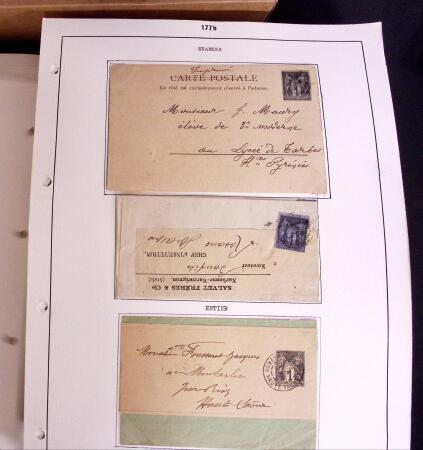 177b
NUANCES
Imprimé
CARTE POSTALE
Ce côté est exclusivement réservé à l'adresse.
Monsieur G. Maury
élève de 3e moderne
au Lycée de Tarbes
Htes Pyrénées
SALVET FRÈRES & Cie
Narbonne-Marcorignan, (Aude)
Monsieur
CHEF D'INSTITUTION,
ENTIER
Monsieur Jacques
à
par Rioz
Haute-Saône